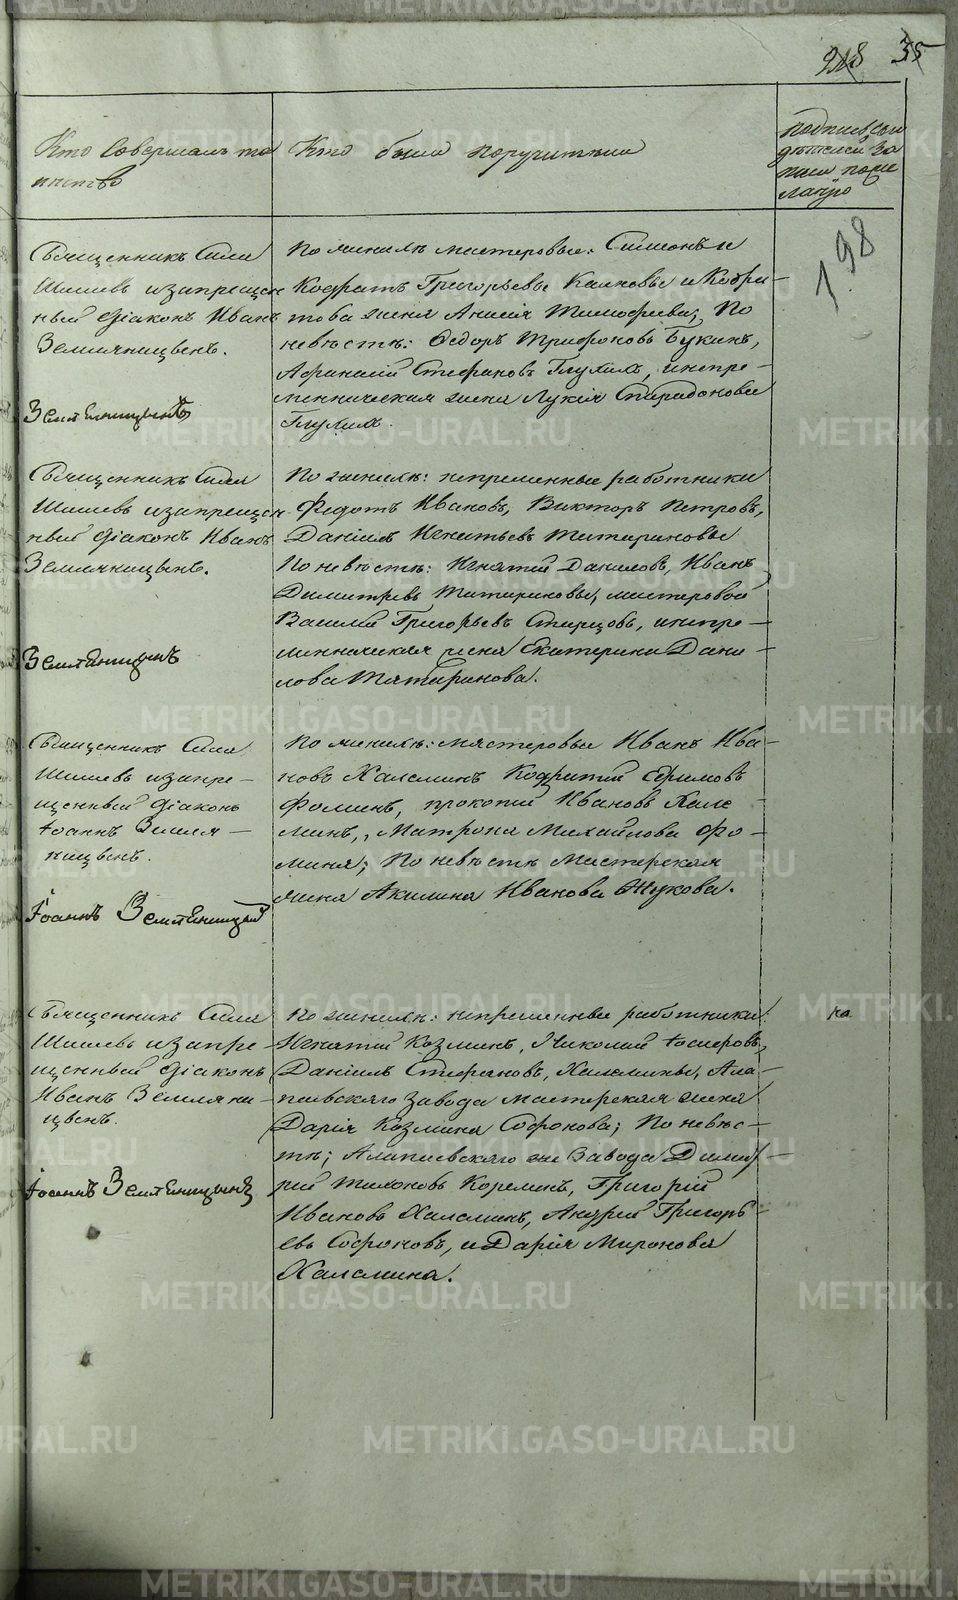 918 35
Кто Совершалъ та
инство
Кто были поручители
подписъ сви
дѣтелей за
писи поже
ланію
198
Священникъ Сила
Шишевъ и запрещен
ный діаконъ Иванъ
Земляницынъ.
Землѣницынъ
По женихѣ мастеровые: Симіонъ и
Кодратъ Григорьевы Каиновы и Кодра-
това жена Анисія Тимофиева; По
невѣстѣ: Ѳедоръ Трифоновъ Букинъ,
Афанасій Стефановъ Глухихъ, и непре-
менническая жена Лукія Спиридонова
Глухихъ.
Священникъ Сила
Шишевъ и запрещен
ный діаконъ Иванъ
Земляницынъ.
Землѣницынъ
По женихѣ: непременные работники
Федотъ Ивановъ, Викторъ Петровъ,
Даніилъ Игнатьевъ Татариновы
По невѣстѣ: Игнатій Даниловъ, Иванъ
Димитріевъ Татариновы, мастеровой
Василій Григорьевъ Старцовъ, и непре-
менническая жена Екатерина Дани-
лова Татаринова.
Священникъ Сила
Шишевъ и запре-
щенный діаконъ
Іоаннъ Земля-
ницынъ.
Іоаннъ Землѣницын
По женихѣ: мастеровые Иванъ Ива-
новъ Халеминъ Кодратій Ефимовъ
Фоминъ, прокопій Ивановъ Хале-
минъ, Матрона Михайлова Фо-
мина; По невѣстѣ Мастерская
жена Акилина Иванова Жукова.
Священникъ Сила
Шишевъ и запре-
щенный діаконъ
Иванъ Земляни-
цынъ.
Іоаннъ Землѣницынъ
По женихѣ: непременные работники
Игнатій Козминъ, Николай Іосифовъ,
Даніилъ Стефановъ, Халемины, Ала-
паевскаго завода мастерская жена
Дарія Козмина Софонова; По невѣс-
тѣ; Алапаевскаго же Завода Димит-
рій Тихоновъ Кореминъ, Григорій
Ивановъ Халеминъ, Андрей Григорь-
евъ Софоновъ, и Дарія Миронова
Халемина.
на
METRIKI.GASO-URAL.RU